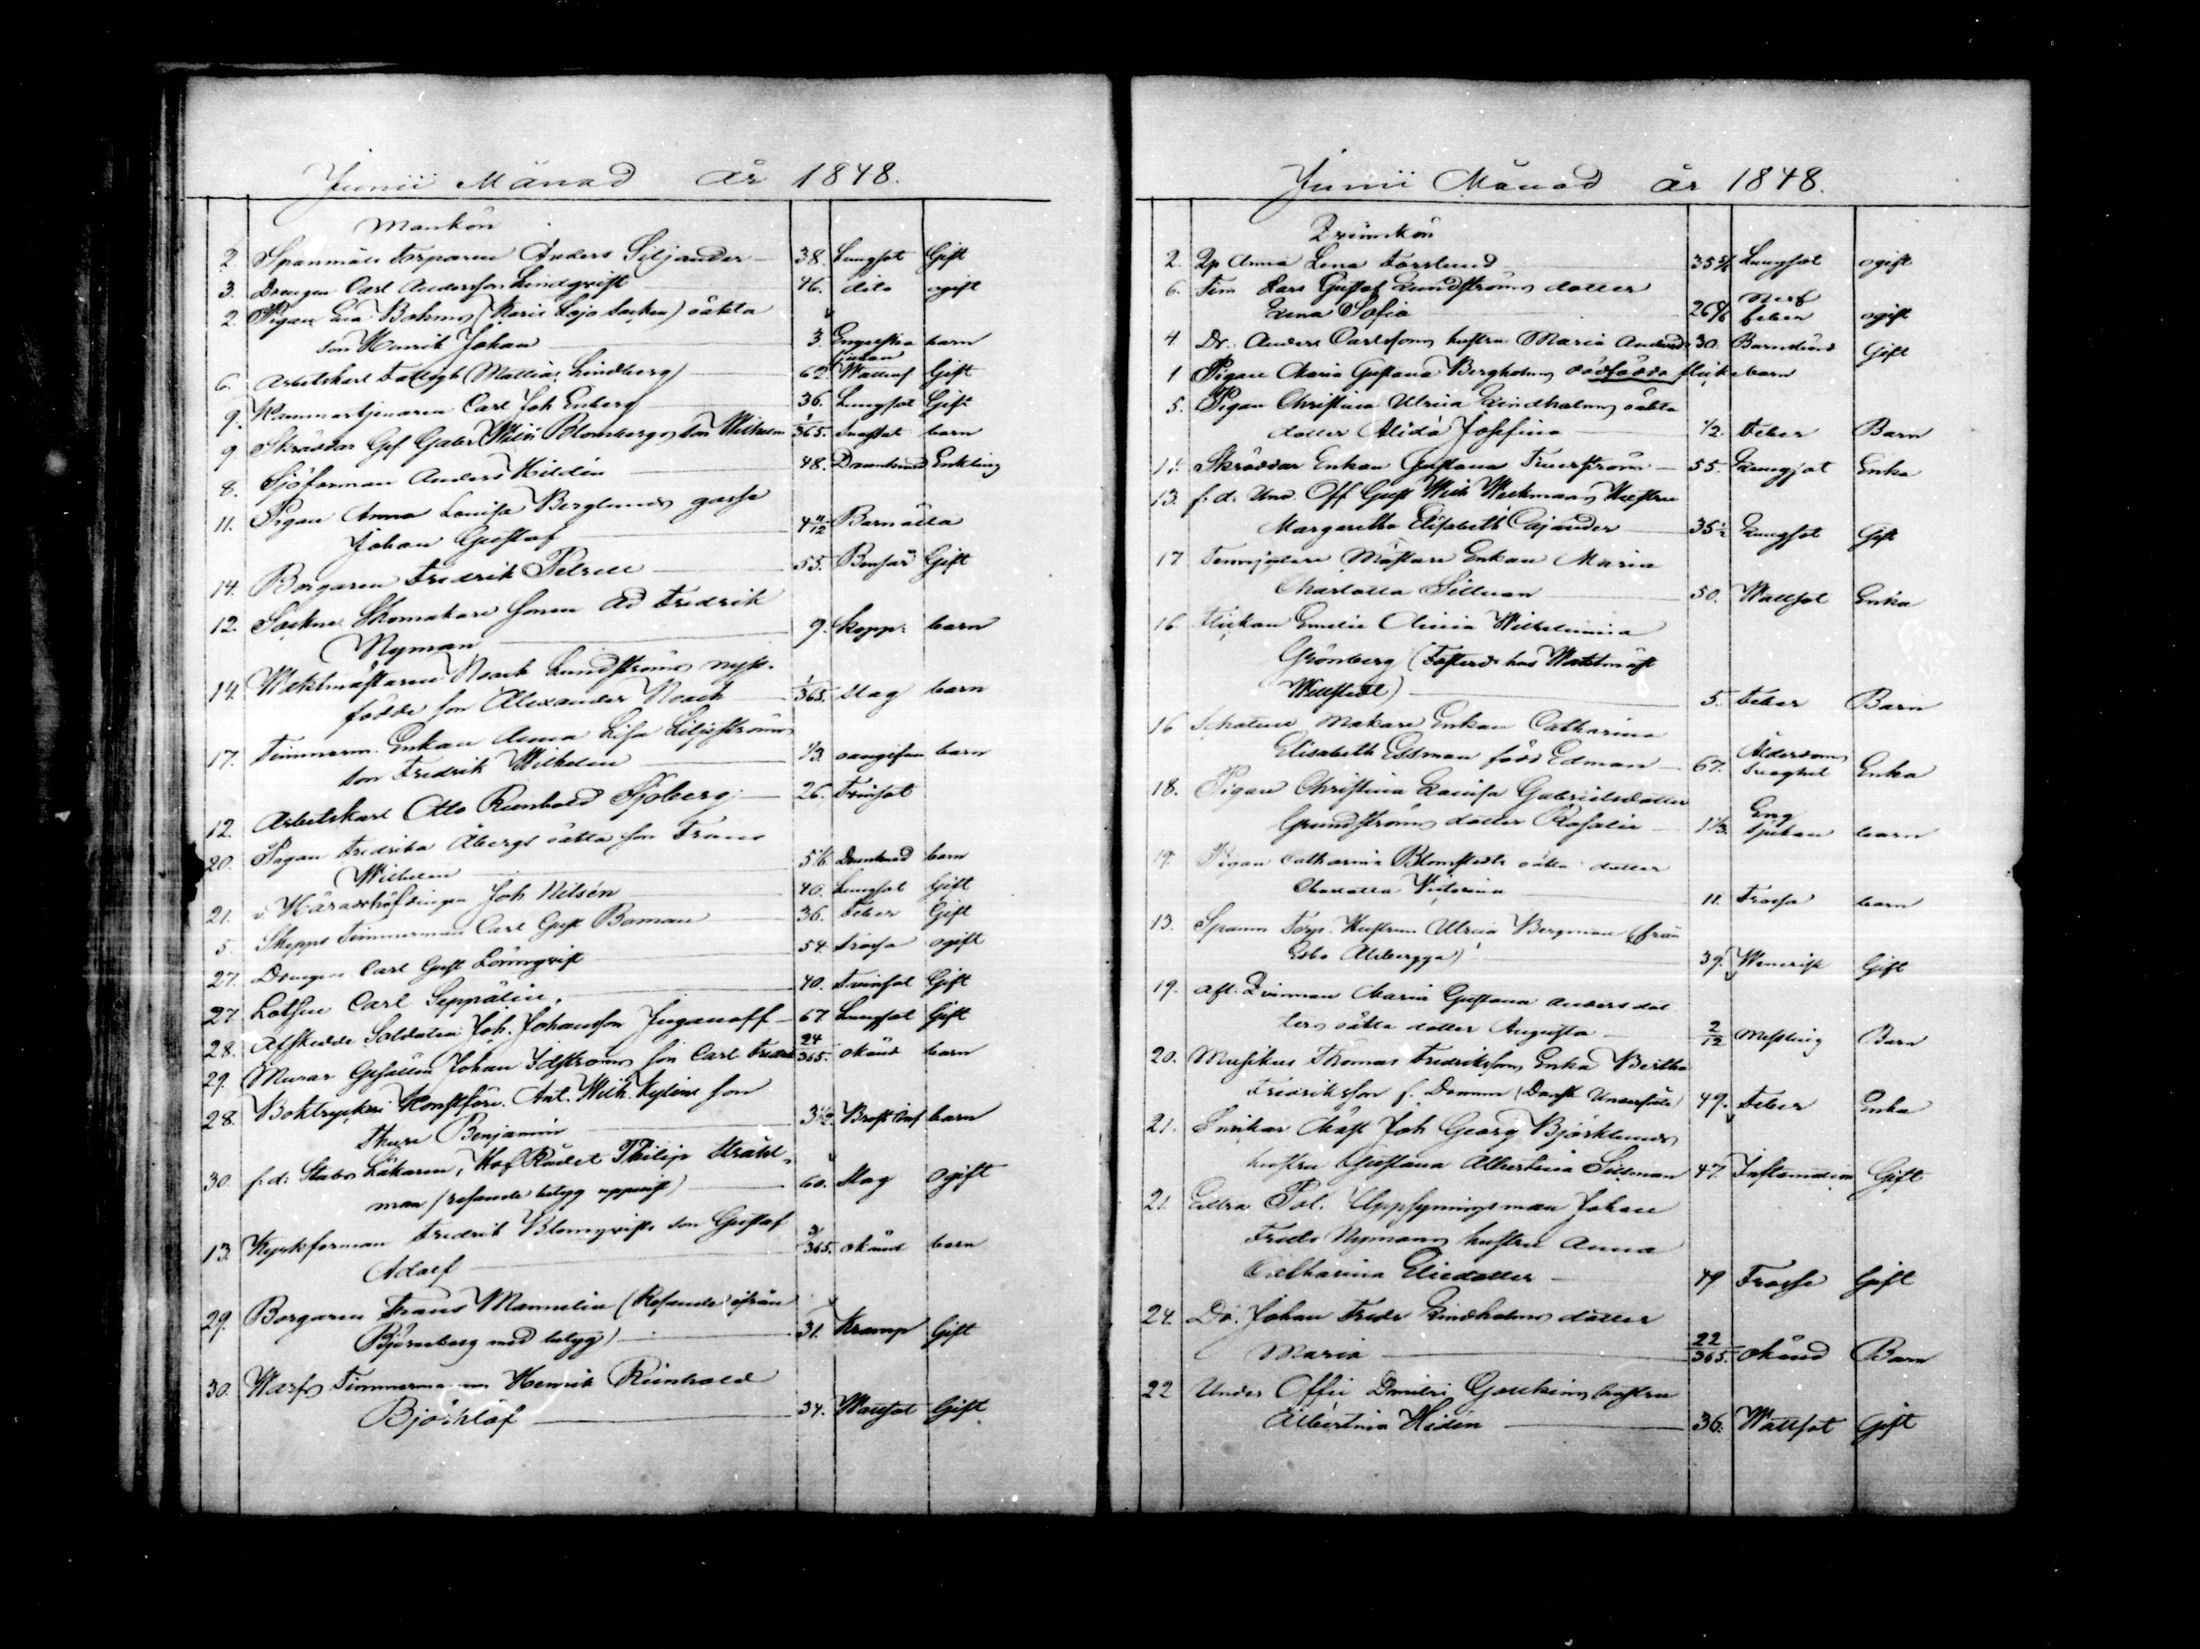 Junii Månad år 1848.
Mankön
2. Spanmåls Torparen Anders Siljander 38. Lungsot Gift
3. Drengen Carl Andersson Lindqvist 46. dito ogift
2. Pigan Eva Bohms (Karis Lojo Socken) oäkta
son Henrik Johan 3. Engelska sjukan barn
6. Arbetskarl Fattighj (Mattias Lindberg) 62 Wattus Gift
9. Kammartjenaren Carl Joh Enberg 36. Lungsot Gift
9. Skräddar Ges Gabr Wilh Blombergs son Wilhelm 1/365. barn
8. Sjöforman Anders Kildén 48. Drunknad Enkling
11. Pigan Anna Lovisa Berglunds gosse
Johan Gustaf 4 11/12 Barn
14. Borgaren Fredrik Petrell 55. Bensår Gift
12. Socken Skomakare sonen Ad Fredrik
Nyman 9. Kopp: barn
14. Waktmästaren Noach Lundströms nyss.
födde son Alexander Noach 1/365. slag barn
17. Timmerm. Enkan Anna Lisa Liljeströms
son Fredrik Wilhelm 1/3. oangifven barn
12. Arbetskarl Otto Reinhold Sjöberg 26. Tvinsot
20. Pigan Fredrika Åbergs oäkta son Frans
Wilhelm 5 1/6. Drunknad barn
21. v. Häradshöfdingen Joh Nilsén 40. Lungsot Gift
5. Skepps Timmerman Carl Gust Boman 36. Feber Gift
27. Drengen Carl Gust Lönnqvist 54. Frossa ogift
27. Lotsen Carl Seppälin. 40. Tvinsot Gift
28. Afskedde Soldaten Joh. Johansson Juganoff 67 Lungsot Gift
29. Murar Gesällen Johan Idströms son Carl Fredrik 24/365. okänd barn
28. Boktryckeri Konstför. Ant. Wilh. Kyléns son
Thure Benjamin 3 1/2. Bröst Inf barn
30. f.d. Stabs Läkaren, Hof Rådet Philip Stråhl-
man (resande betyg uppvist) 60. Slag Ogift
13. Kyrkforman Fredrik Blomqvists son Gustaf
Adolf 3/365. okänd barn
29. Borgaren Frans Mannelin (Resande ifrån
Björneborg med betyg) 31. Kramp Gift
30. Warfs Timmerman Henrik Reinhold
Björklöf 34. Wattsot Gift
Junii Månad år 1848.
Qvinnkön
2. Qp Anna Lena Forslund 35 5/6 Lungsot ogift
6. Tim Lars Gustaf Lundströms dotter
Lena Sofia 26 5/6 Nerf feber ogift
4 Dr. Anders Carlssons hustru Maria Andersd 30. Barnsbörd Gift
1 Pigan Maria Gustava Bergholms dödfödda flickebarn
5. Pigan Christina Ulrica Lindholms oäkta
dotter Alida Josefina 1/2. Feber Barn
11. Skräddar Enkan Gustava Fuerström 55. Lungsot Enka
13. f.d. Und. Off Gust Wilh Weckmans Hustru
Margaretha Elisabeth Cajander 35 1/2 Lungsot Gift
17 Tenngjutare Mästare Enkan Maria
Charlotta Sillman 50. Wattsot Enka
16 Flickan Emelie Olivia Wilhelmina
Grönberg (Fosterd hos Waktmäst
Wellstedt) 5. Feber Barn
16 Makare Enkan Catharina
Elisabeth Edsman född Edman 67. Ålderdoms svaghet Enka
18. Pigan Christina Lovisa Gabrielsdotter
Grundströms dotter Rosalie 1 1/3. Eng sjukan barn
19. Pigan Catharina Blomstedts oäkta dotter
Charlotta Victorina 11. Frossa barn
13. Spanm Torp. Hustrun Ulrica Bergman (från
Esbo Alberga) 39. Wenerisk Gift
19. Afl. Qvinnan Maria Gustava Andersdot
ters oäkta dotter Augusta 2/12 Messling Barn
20. Musikus Thomas Fredrikssons Enka Bertha
Fredriksson f. Damm (Dansk Undersåte) 49. Feber Enka
21. Snikar Mäst Joh Georg Björklunds
hustru Gustava Albertina Sillman 47. Inflamation Gift
21. Extra Pol. Uppsyningsman Johan
Fredr Nymans hustru Anna
Catharina Eliedotter 49 Frossa Gift
24. Dr. Johan Fredr Lindholms dotter
Maria 22/365. okänd Barn
22 Under Offic Dmitri Gouskins hustru
Albertina Hidén 36. Wattsot Gift